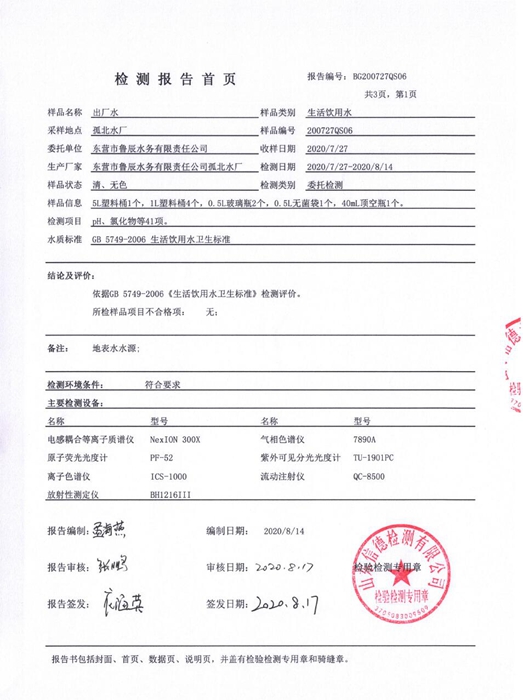 检测报告首页
报告编号: BG200727QS06
共3页, 第1页
样品名称 出厂水 样品类别 生活饮用水
采样地点 孤北水厂 样品编号 200727QS06
委托单位 东营市鲁辰水务有限责任公司 收样日期 2020/7/27
生产厂家 东营市鲁辰水务有限责任公司孤北水厂 检测日期 2020/7/27-2020/8/14
样品状态 清、无色 检测类别 委托检测
样品信息 5L塑料桶1个, 1L塑料桶4个, 0.5L玻璃瓶2个, 0.5L无菌袋1个, 40mL顶空瓶1个。
检测项目 pH、氯化物等41项。
水质标准 GB 5749-2006 生活饮用水卫生标准
结论及评价:
依据GB 5749-2006《生活饮用水卫生标准》检测评价。
所检样品项目不合格项: 无;
备注: 地表水水源;
检测环境条件: 符合要求
主要检测设备:
名称 型号 名称 型号
电感耦合等离子质谱仪 NexION 300X 气相色谱仪 7890A
原子荧光光度计 PF-52 紫外可见分光光度计 TU-1901PC
离子色谱仪 ICS-1000 流动注射仪 QC-8500
放射性测定仪 BH1216III
报告编制: 编制日期: 2020/8/14
报告审核: 审核日期: 2020.8.17 检验检测专用章
报告签发: 签发日期: 2020.8.17
山东信德检测有限公司
检验检测专用章
报告书包括封面、首页、数据页、说明页, 并盖有检验检测专用章和骑缝章。